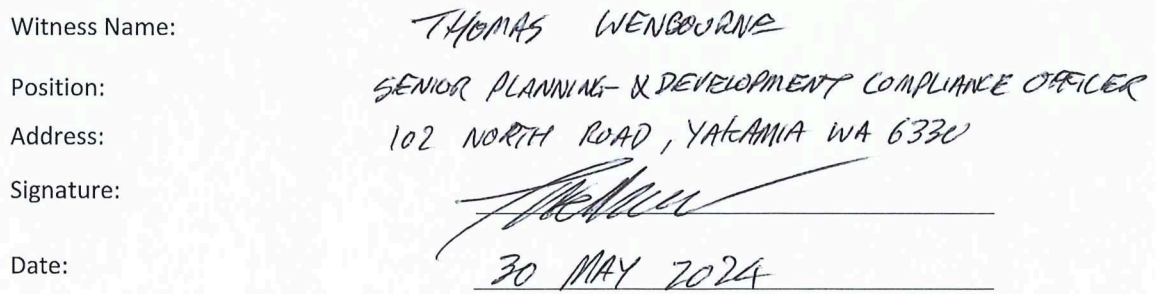 Witness Name: THOMAS WENBOURNE
Position: SENIOR PLANNING & DEVELOPMENT COMPLIANCE OFFICER
Address: 102 NORTH ROAD, YAKAMIA WA 6330
Signature:
Date: 30 MAY 2024